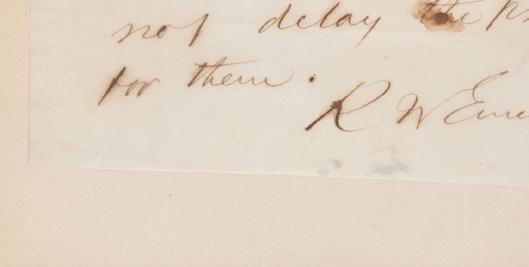 not delay the pr
for them.
R W Eme